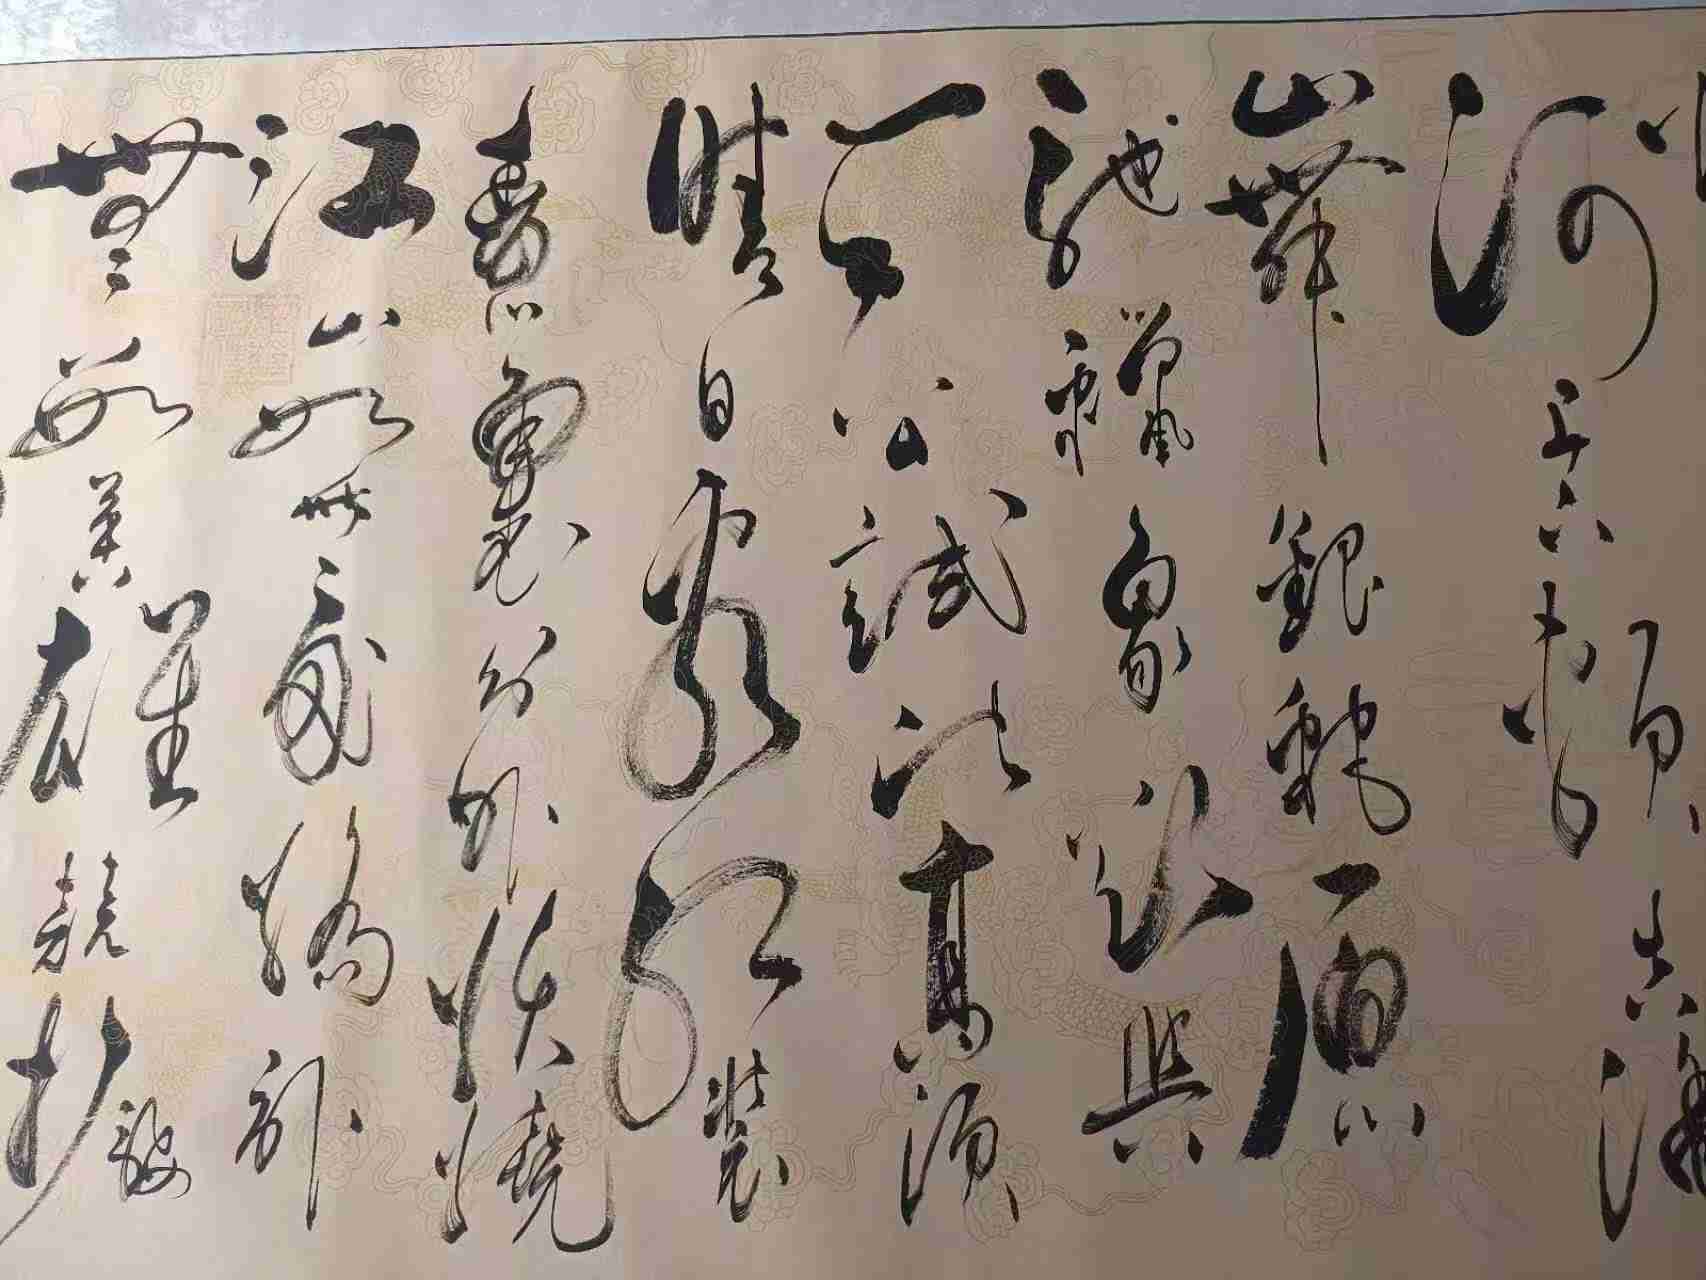 河上下頓失滔
山舞銀蛇原
馳蠟象欲與
天公試比高須
晴日看紅裝
素裹分外妖嬈
江山如此多嬌引
無數英雄競折腰